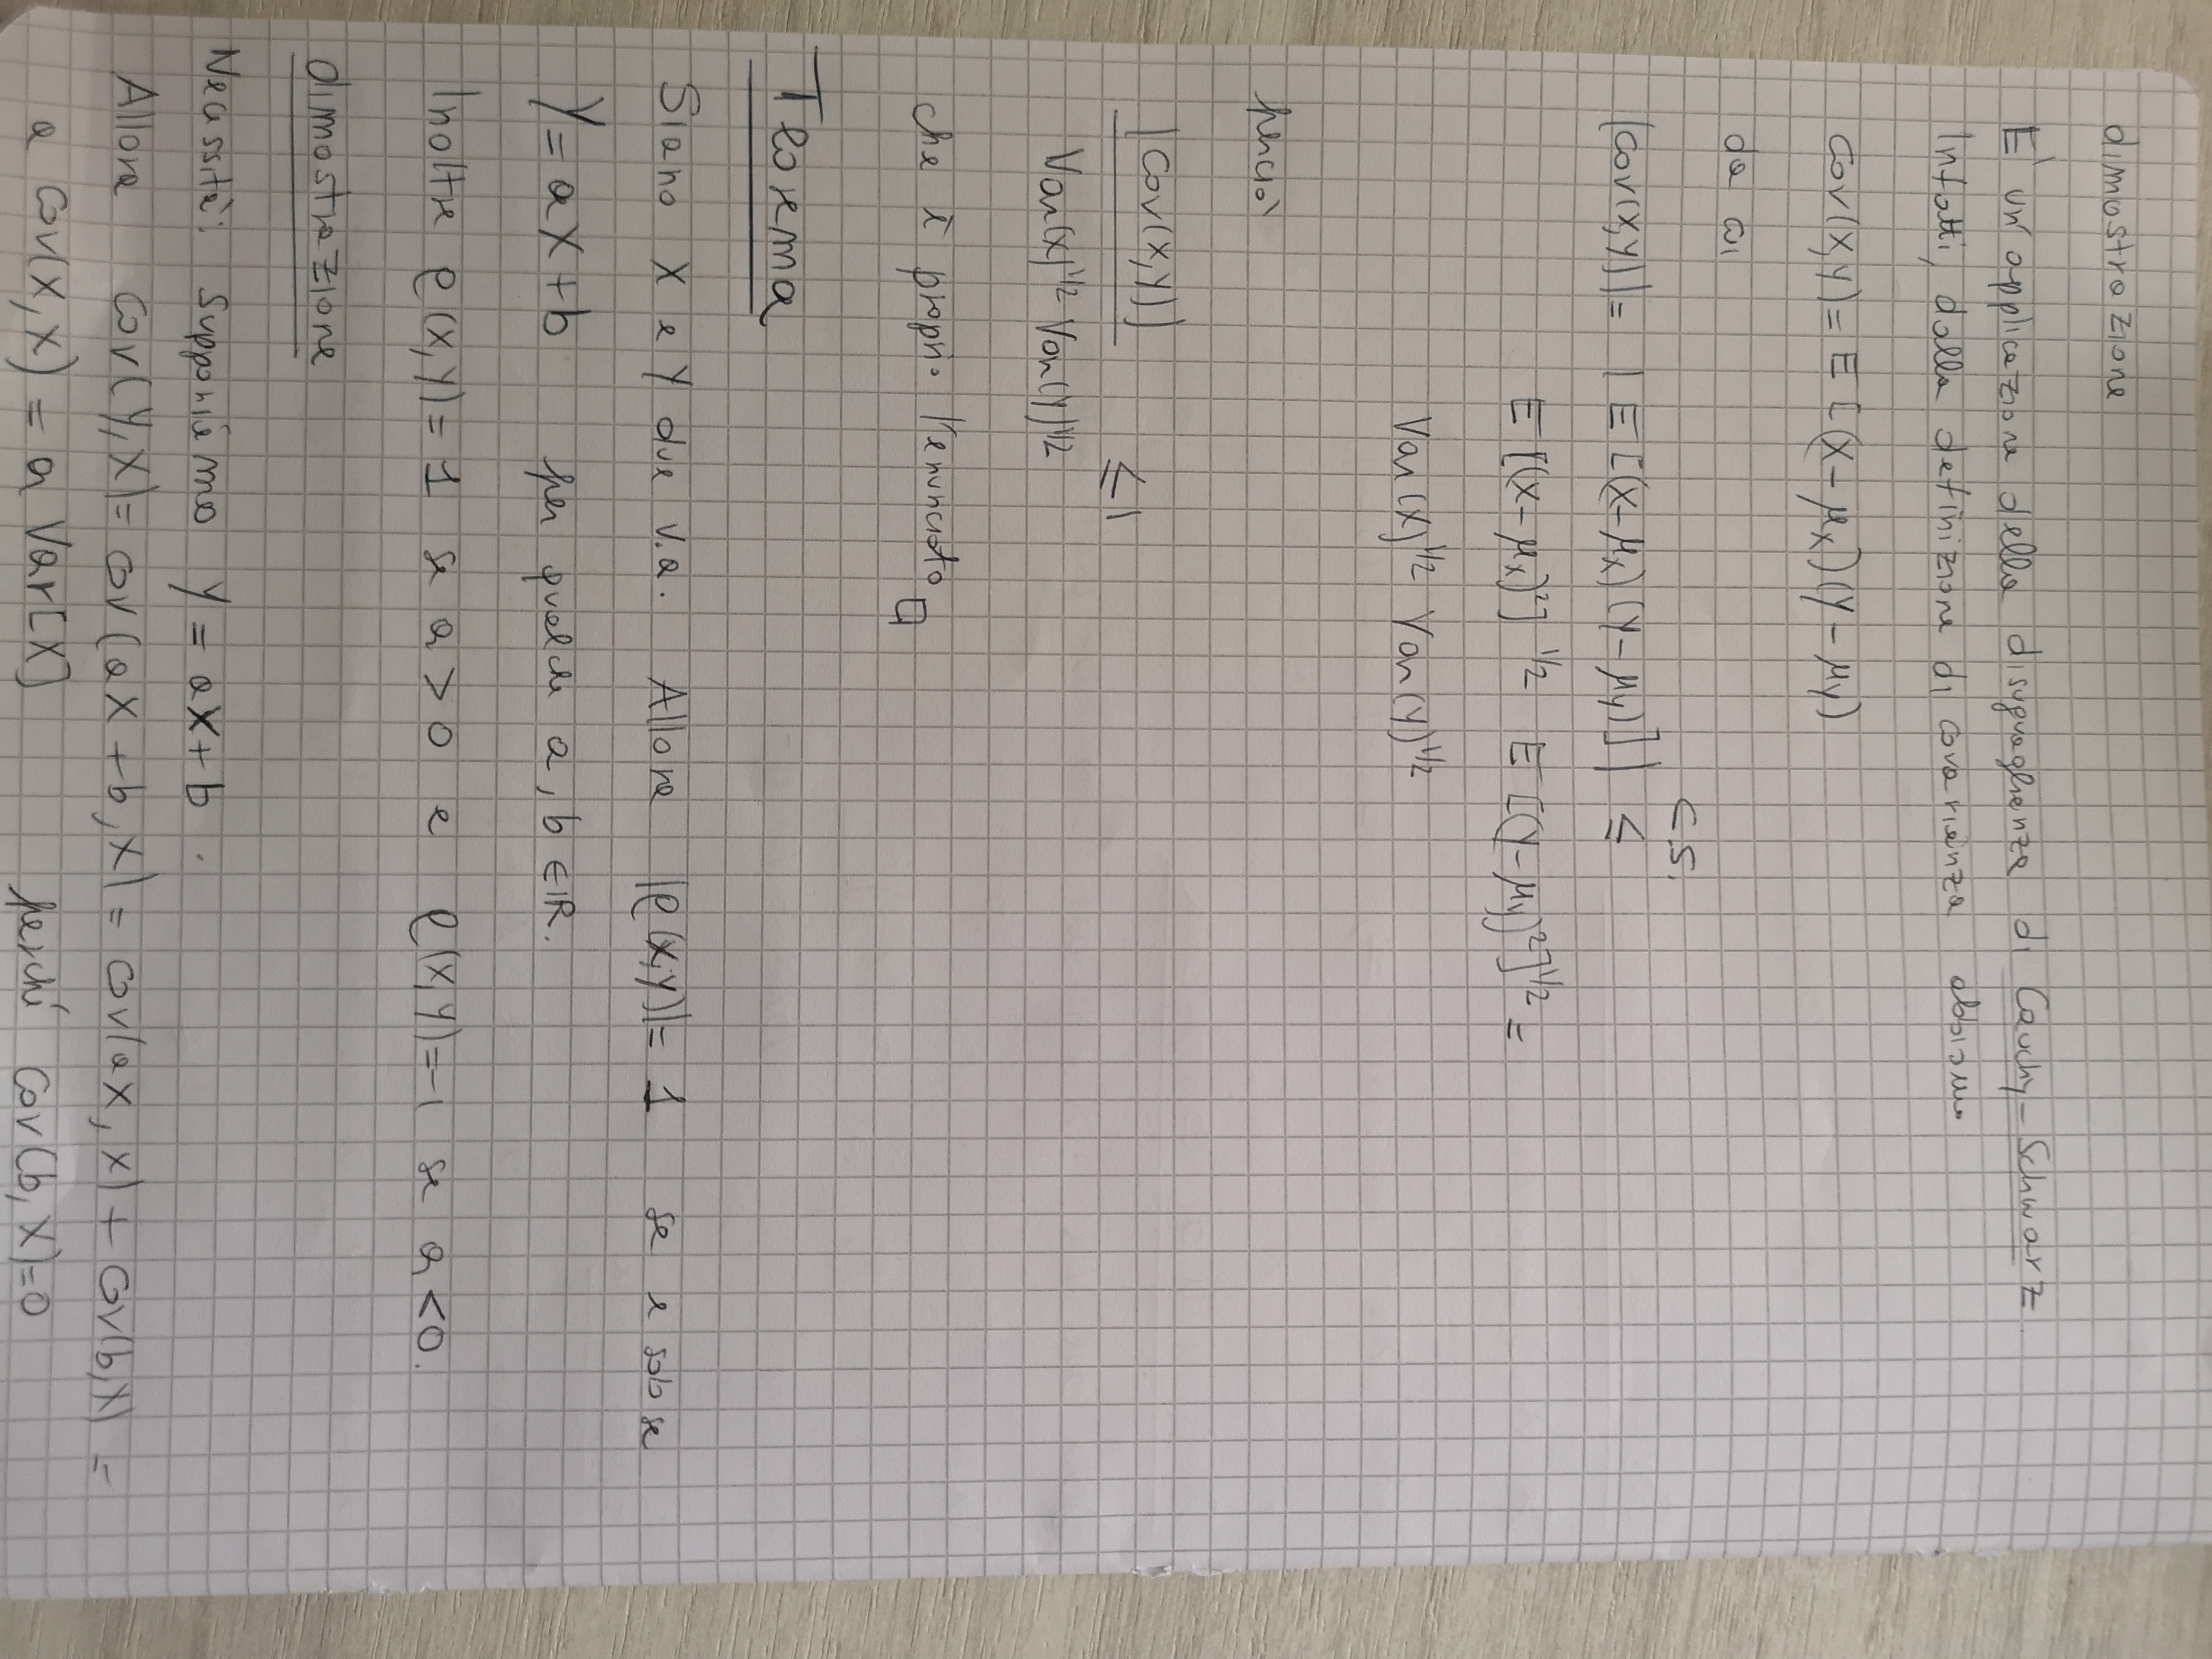 dimostrazione
E' un'applicazione della disuguaglianza di Cauchy-Schwarz.
Infatti, dalla definizione di covarianza abbiamo
Cov(X,Y)= E[(X-μx)(Y-μy)
da cui
C.S.
|Cov(X,Y)|= |E[(X-μx)(Y-μy)]| ≤
E[(X-μx)²]^1/2 E[(Y-μy)²]^1/2 =
Var(X)^1/2 Var(Y)^1/2
perciò
|Cov(X,Y)| ≤1
Var(X)^1/2 Var(Y)^1/2
che è proprio l'enunciato □
Teorema
Siano X e Y due v.a. Allora |ρ(X,Y)|= 1 se e solo se
Y=aX+b per qualche a, b ∈ℝ.
Inoltre ρ(X,Y)=1 se a>0 e ρ(X,Y)=-1 se a<0.
dimostrazione
Necessità: Supponiamo Y = aX+b.
Allora Cov(Y,X)= Cov(aX+b,X)= Cov(aX,X)+ Cov(b,X) =
a Cov(X,X) = a Var[X] perché Cov(b,X)=0